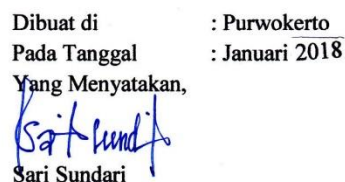 Dibuat di : Purwokerto
Pada Tanggal : Januari 2018
Yang Menyatakan,
Sari Sundari